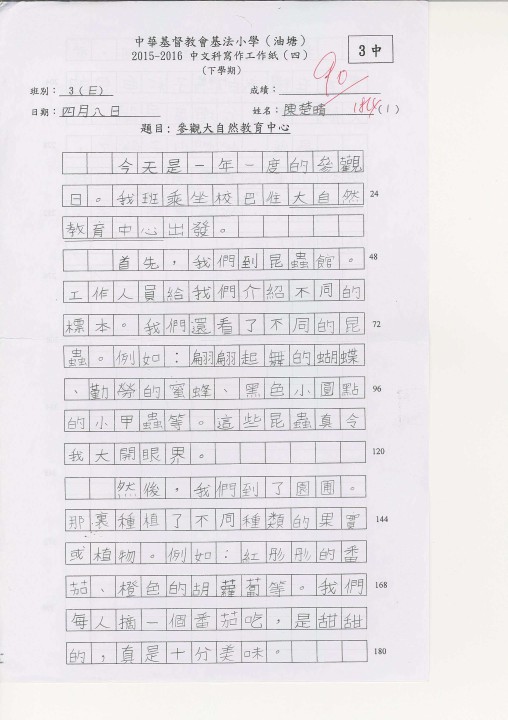 中華基督教會基法小學（油塘）
2015-2016 中文科寫作工作紙（四）
（下學期）
3 中
90
班別： 3（E） 成績：
日期：四月八日 姓名：陳楚晴 (1)
題目：參觀大自然教育中心
今天是一年一度的參觀
日。我班乘坐校巴往大自然 24
教育中心出發。
首先，我們到昆蟲館。 48
工作人員給我們介紹不同的
標本。我們還看了不同的昆 72
蟲。例如：翩翩起舞的蝴蝶
、勤勞的蜜蜂、黑色小圓點 96
的小甲蟲等。這些昆蟲真令
我大開眼界。 120
然後，我們到了園圃。
那裏種植了不同種類的果實 144
或植物。例如：紅彤彤的番
茄、橙色的胡蘿蔔等。我們 168
每人摘一個番茄吃，是甜甜
的，真是十分美味。 180